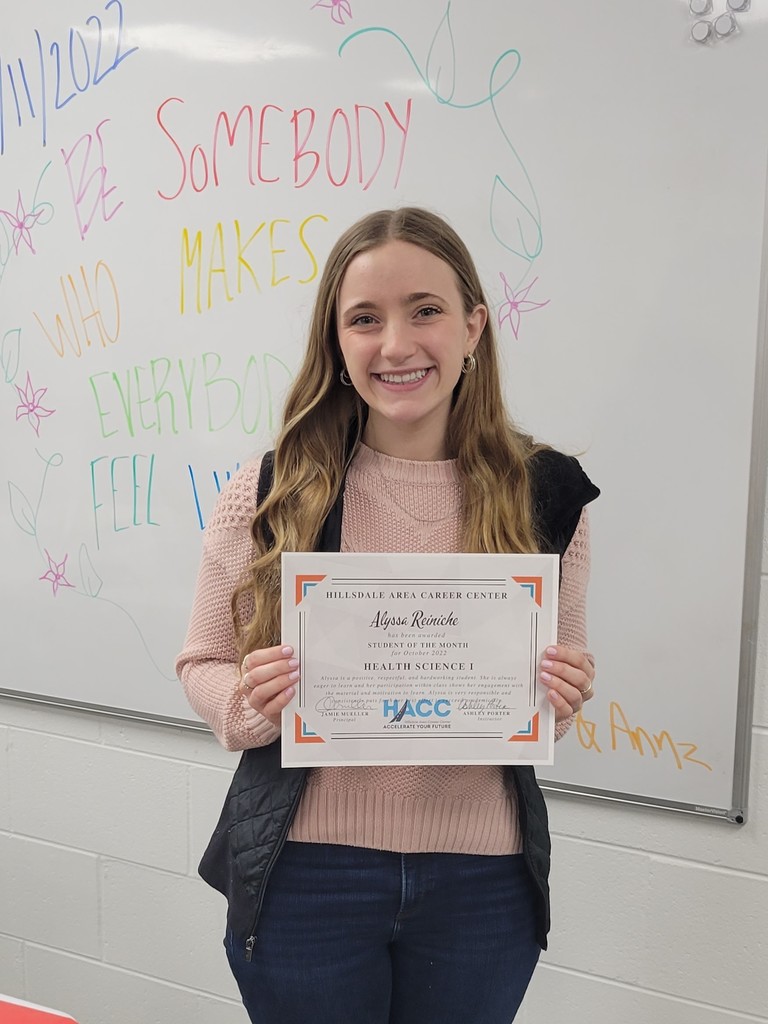 /11/2022
BE SOMEBODY
WHO MAKES
EVERYBOD
FEEL
& Annz
HILLSDALE AREA CAREER CENTER
Alyssa Reiniche
has been awarded
STUDENT OF THE MONTH
for October 2022
HEALTH SCIENCE I
Alyssa is a positive, respectful, and hardworking student. She is always
eager to learn and her participation within class shows her engagement with
the material and motivation to learn. Alyssa is very responsible and
JAMIE MUELLER
Principal
HACC
ACCELERATE YOUR FUTURE
ASHLEY PORTER
Instructor